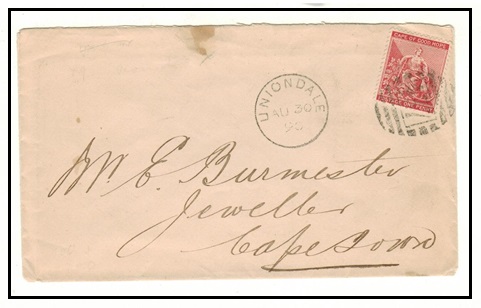 CAPE OF GOOD HOPE
POSTAGE ONE PENNY
UNIONDALE
AU 30
90
Mr. E. Burmester
Jeweller
Cape Town